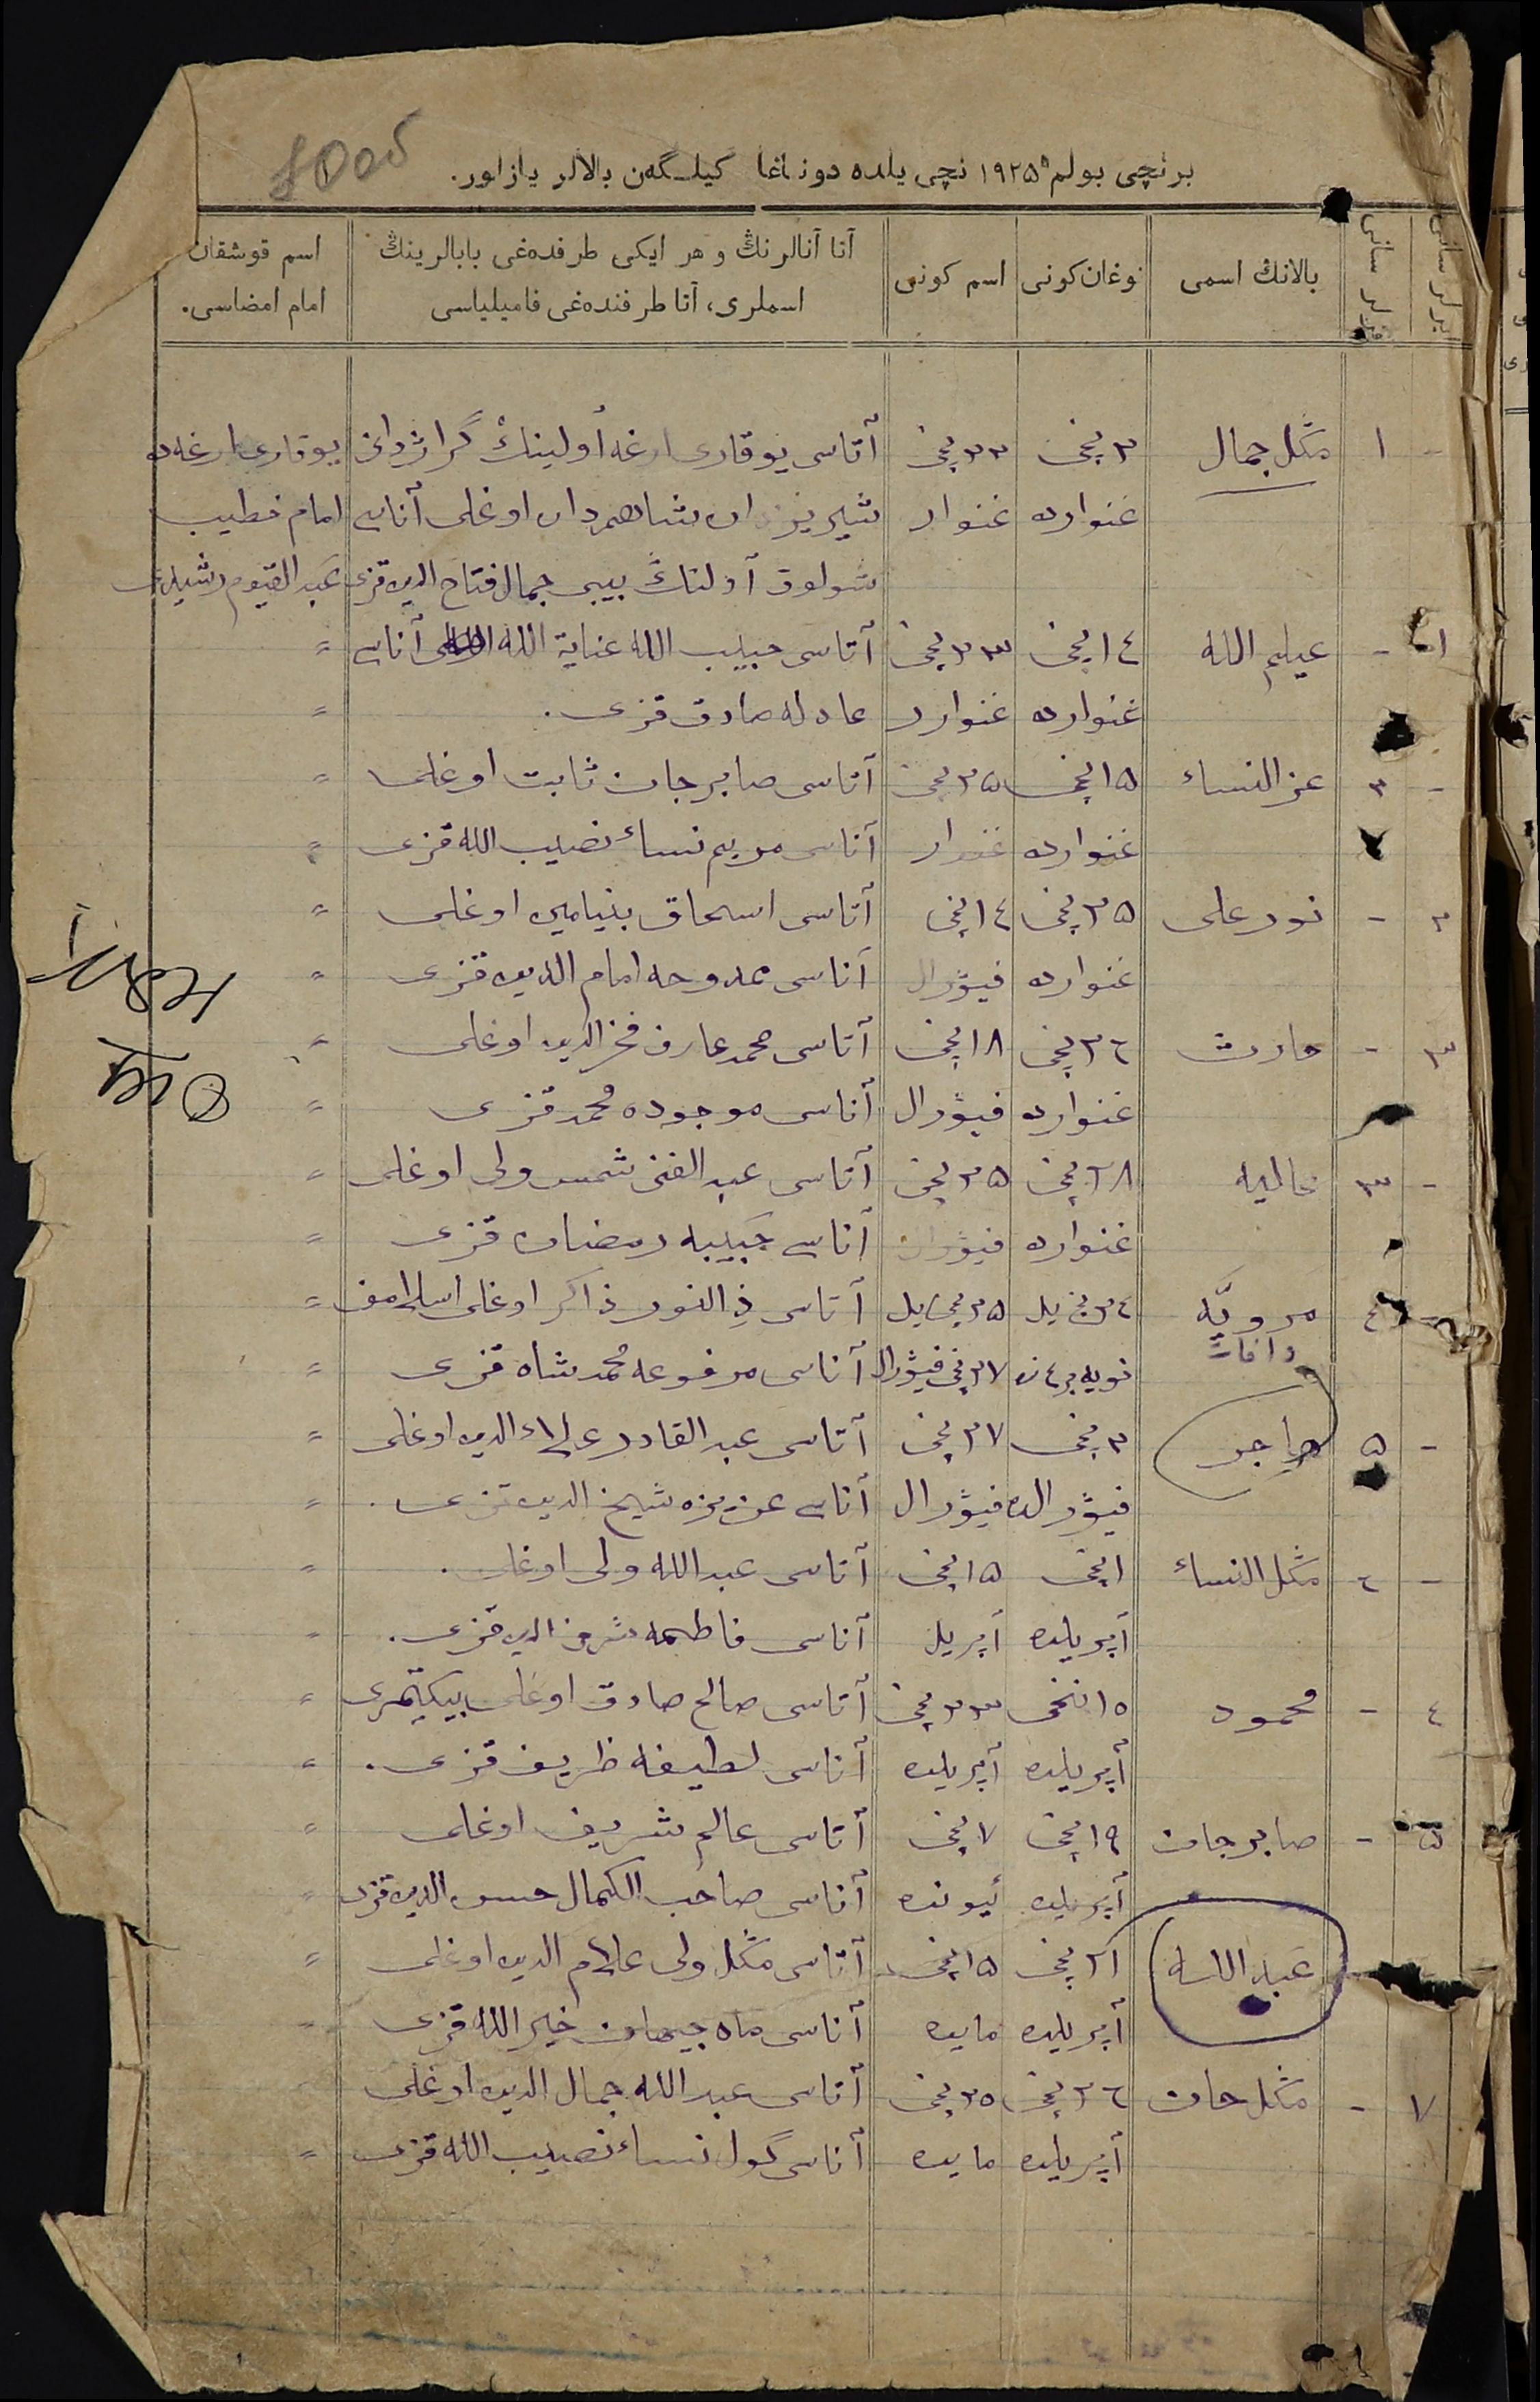 برنچی بولم ١٩٢٥ نچی یلده دونیاغا کیلگەن بالالر یازلور.
بالانڭ اسمی
توغان کونی
اسم کونی
آتا آنالرنڭ و هر ایکی طرفدەغی بابالرینڭ
اسملری، آتا طرفندەغی فامیلیاسی
اسم قوشقان
امام امضاسی.
١ مڭل جمال ٣ نچی ٢٣ نچی آتاسی یوقاری ارغه أولینڭ گراژدانی یوقاری ارغەده
غنوارده غنوار شاهمردان اوغلی آناسی امام خطیب
آولنڭ بیبی جمال فتاح الدین قزی عبد القیوم
عیلم الله ١٤ نچی ٢٣ نچی آتاسی حبیب الله عنایة الله آناسی
غنوارده غنوارد عادله صادق قزی.
٢ عز النساء ١٥ نچی ٢٥ نچی آتاسی صابرجان ثابت اوغلی
غنوارده غنوار آناسی مریم نساء نصیب الله قزی
٢ - نور علی ٢٥ نچی ١٤ نچی آتاسی اسحاق بنیامین اوغلی
غنوارده فیۋرال آناسی ممدوحه امام الدین قزی
٣ - حارث ٢٦ نچی ١٨ نچی آتاسی محمد عارف فخر الدین اوغلی
غنوارده فیۋرال آناسی موجوده محمد قزی
- ٣ عالیه ٢٨ نچی ٢٥ نچی آتاسی عبد الغنی شمس ولی اوغلی
غنوارده فیۋرال آناسی حبیبه رمضان قزی
٤ مرویّه ٢٤ نچی یل ٢٥ نچی یل آتاسی ذالنور ذاکر اوغلی
وفات ٢٧ نچی فیۋرال آناسی مرفوعه محمد شاه قزی
- ٥ هاجر ٣ نچی ٢٧ نچی آتاسی عبد القادر علاء الدین اوغلی
فیۋرالده فیۋرال آناسی عزیزه شیخ الدین قزی
- ٦ مڭل النساء ١ نچی ١٥ نچی آتاسی عبد الله ولی اوغلی.
آپریلده آپریل آناسی فاطمه شرف الدین قزی.
٤ - محمود ١٥ نچی ٢٣ نچی آتاسی صالح صادق اوغلی بیکتیمری
آپریلده آپریلده آناسی لطیفه ظریف قزی.
٥ - صابرجان ١٩ نچی ٧ نچی آتاسی عالم شریف اوغلی
آپریلده ئیونده آناسی صاحب الکمال حسن الدین قزی
عبد الله ٢١ نچی ١٥ نچی آتاسی مڭل ولی علام الدین اوغلی
آپریلده مایده آناسی ماه جیهان خیر الله قزی
٧ - مڭل جان ٢٦ نچی ٢٥ نچی آتاسی عبد الله جمال الدین اوغلی
آپریلده مایده آناسی گول نساء نصیب الله قزی